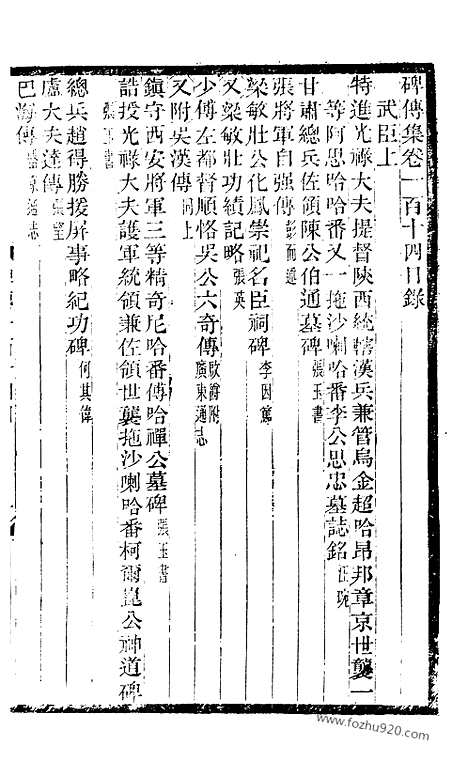 碑傳集卷一百十四目錄
武臣上
特進光祿大夫提督陝西統轄漢兵兼管烏金超哈昂邦章京世襲一
等阿思哈哈番又一拖沙喇哈番李公思忠墓誌銘汪琬
甘肅總兵佐領陳公伯通墓碑張玉書
張將軍自強傳彭而述
梁敏壯公化鳳崇祀名臣祠碑李因篤
又梁敏壯功績記略張英
少傅左都督順恪吳公六奇傳
廣東通志
又附吳漢傳同上
鎮守西安將軍三等精奇尼哈番傅哈禪公墓碑張玉書
誥授光祿大夫護軍統領兼佐領世襲拖沙喇哈番柯爾崑公神道碑
總兵趙得勝援屏事略紀功碑何其偉
盧大夫達傳張塈
巴海傳盛京通志
www.fozhu920.com